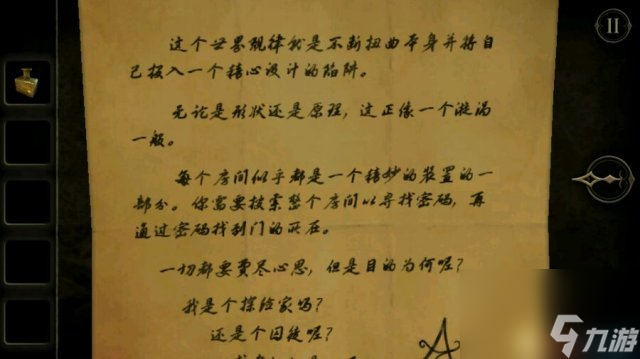 这个世界规律就是不断扭曲本身并将自
己投入一个精心设计的陷阱。
无论是形状还是原理，这正像一个漩涡
一般。
每个房间似乎都是一个精妙的装置的一
部分。你需要搜索整个房间以寻找密码，再
通过密码找到门的所在。
一切都要费尽心思，但是目的为何呢？
我是个探险家吗？
还是个囚徒呢？
九游